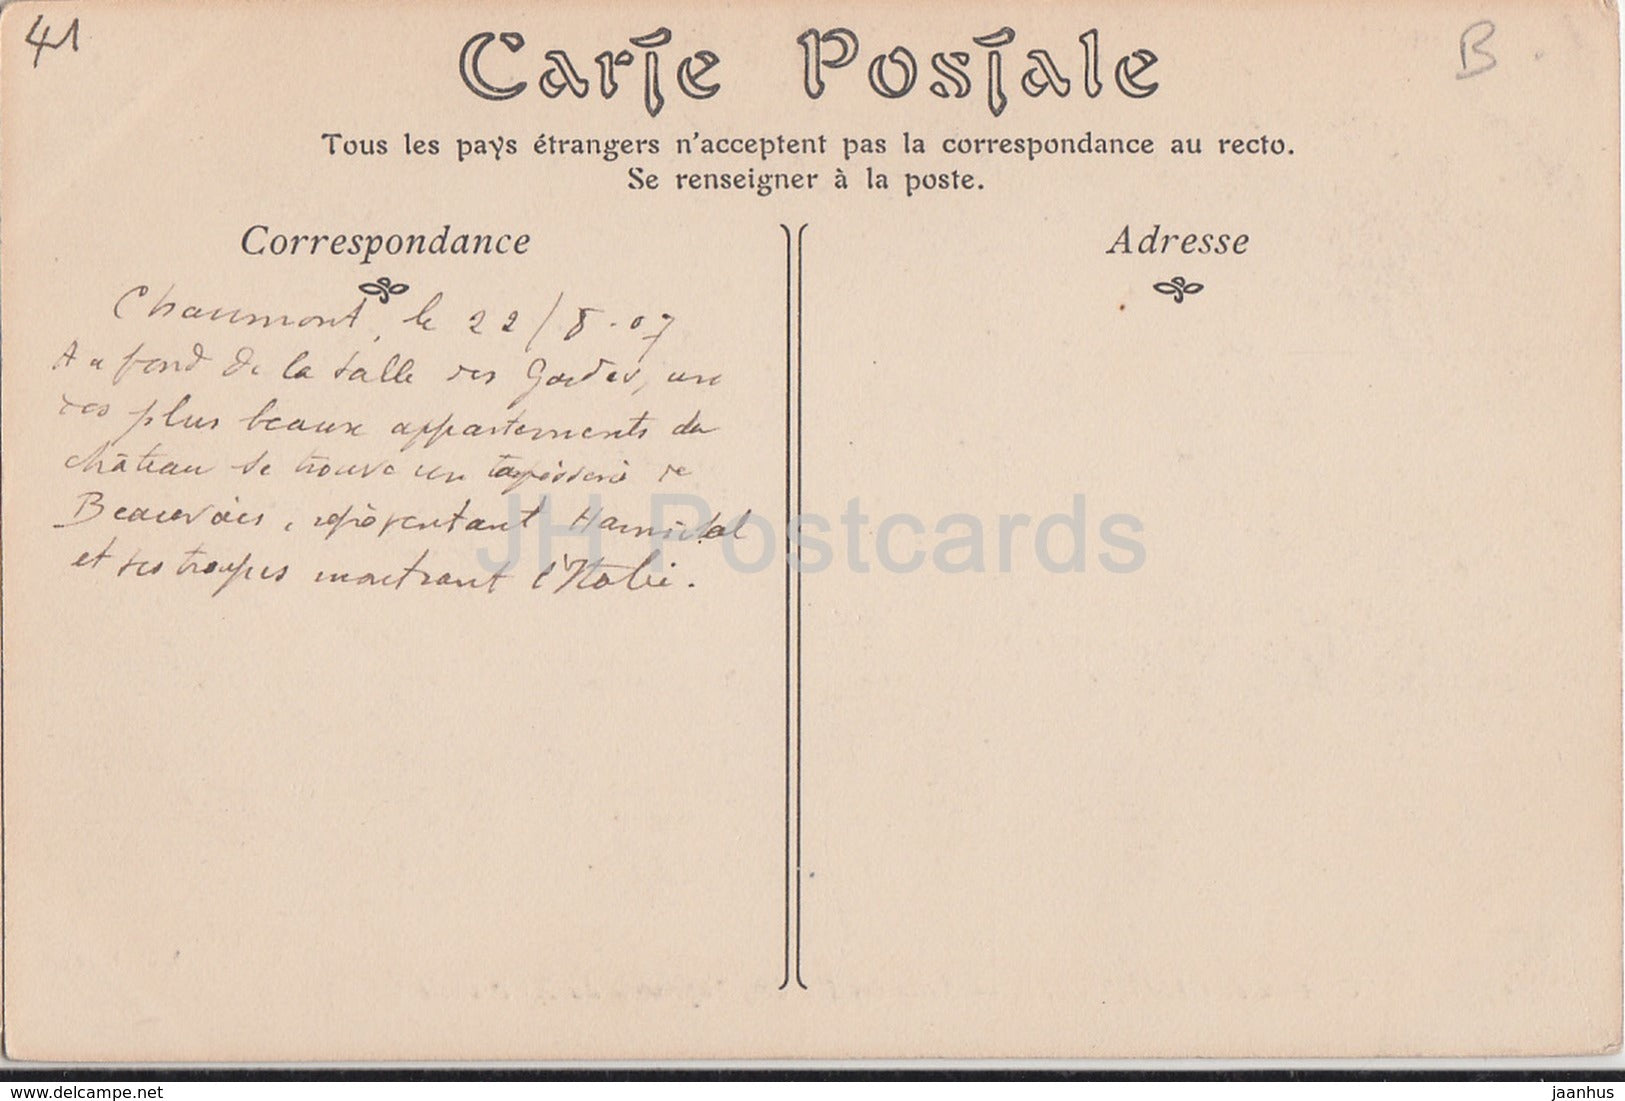 41
B.
Carte Postale
Tous les pays étrangers n'acceptent pas la correspondance au recto.
Se renseigner à la poste.
Correspondance
Adresse
Chaumont, le 22/8-07
Au fond de la salle des Gardes, un
des plus beaux appartements du
château se trouve un tapisserie de
Beauvais, représentant Hannibal
et ses troupes montrant l'Italie.
JH Postcards
delcampe.net
jaanhus